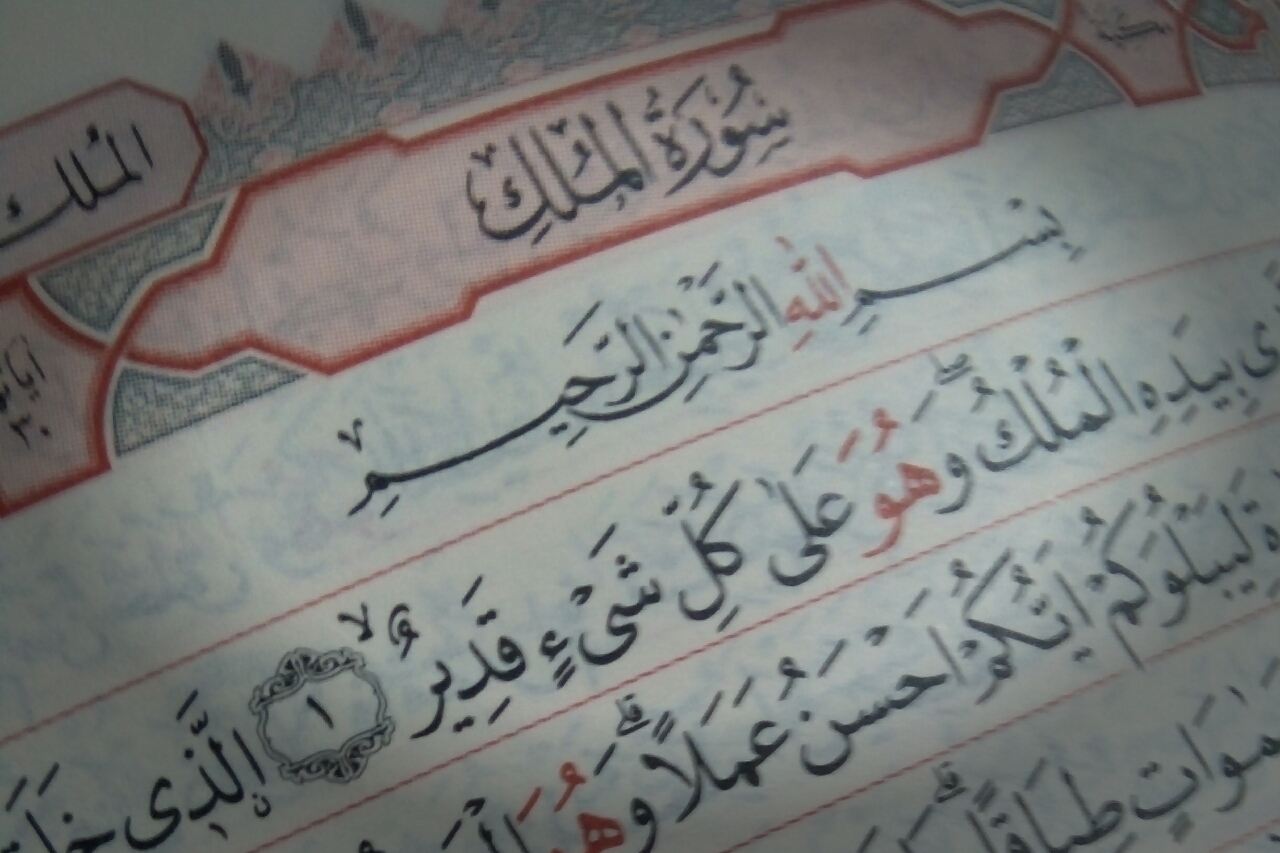 الملك
سُورَةُ الْمُلْكِ
اٰيَاتها ٣٠
بِسْمِ اللّٰهِ الرَّحْمٰنِ الرَّحِيمِ
بِيَدِهِ الْمُلْكُ وَهُوَ عَلٰى كُلِّ شَىْءٍ قَدِيرٌ ١ اِلَّذٖى
لِيَبْلُوَكُمْ اَيُّكُمْ اَحْسَنُ عَمَلًا وَهُوَ
طِبَاقًا